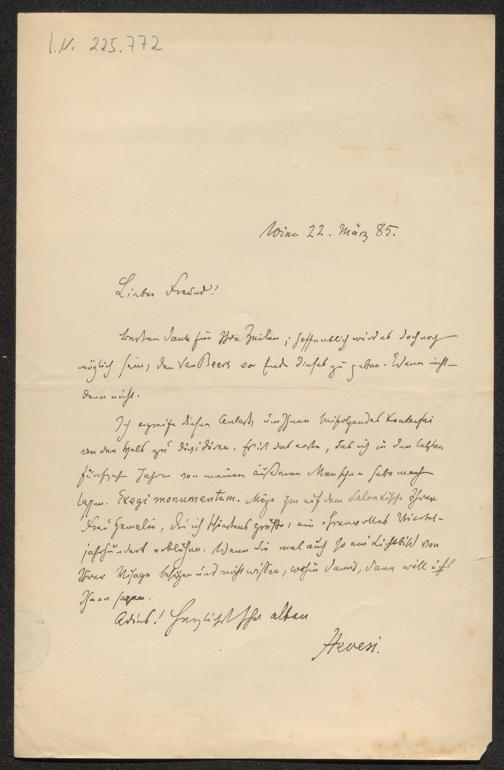 I.N. 225.772
Wien 22. März 85.
Lieber Freund!
besten Dank für Ihre Zeilen; hoffentlich wird es doch noch
möglich sein, den Van Beers vor Ende dieses zu geben. Wenn nicht –
dann nicht.
Ich ergreife diesen Anlaß, um Ihnen beifolgendes Konterfei
an den Hals zu dividiren. Es ist das erste, das ich in den letzten
fünfzehn Jahren von meinem äußeren Menschen habe machen
lassen. Exegi monumentum. Möge ihm auf dem Salontische Ihrer
Frau Gemalin, die ich schönstens grüße, ein Viertel-
jahrhundert erblühen. Wenn Sie mal auch so ein Lichtbild von
Ihrer Visage besitzen und nicht wissen, wohin damit, dann will ich's
Ihnen sagen.
Adies! Herzlichst Ihr alten
Hevesi.